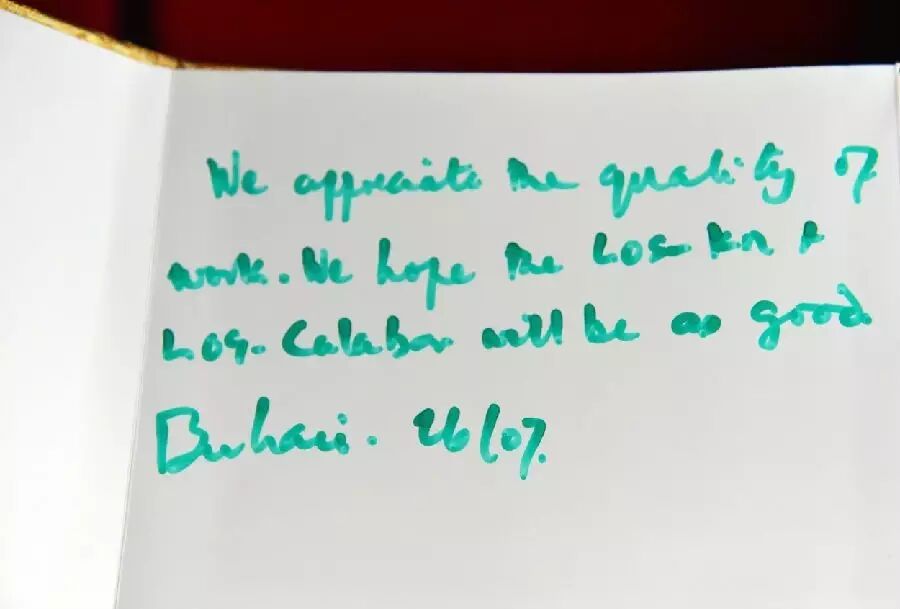 We appreciate the quality of
work. We hope the Los-
Los. Calabar will be as good
Buhari. 26/07.